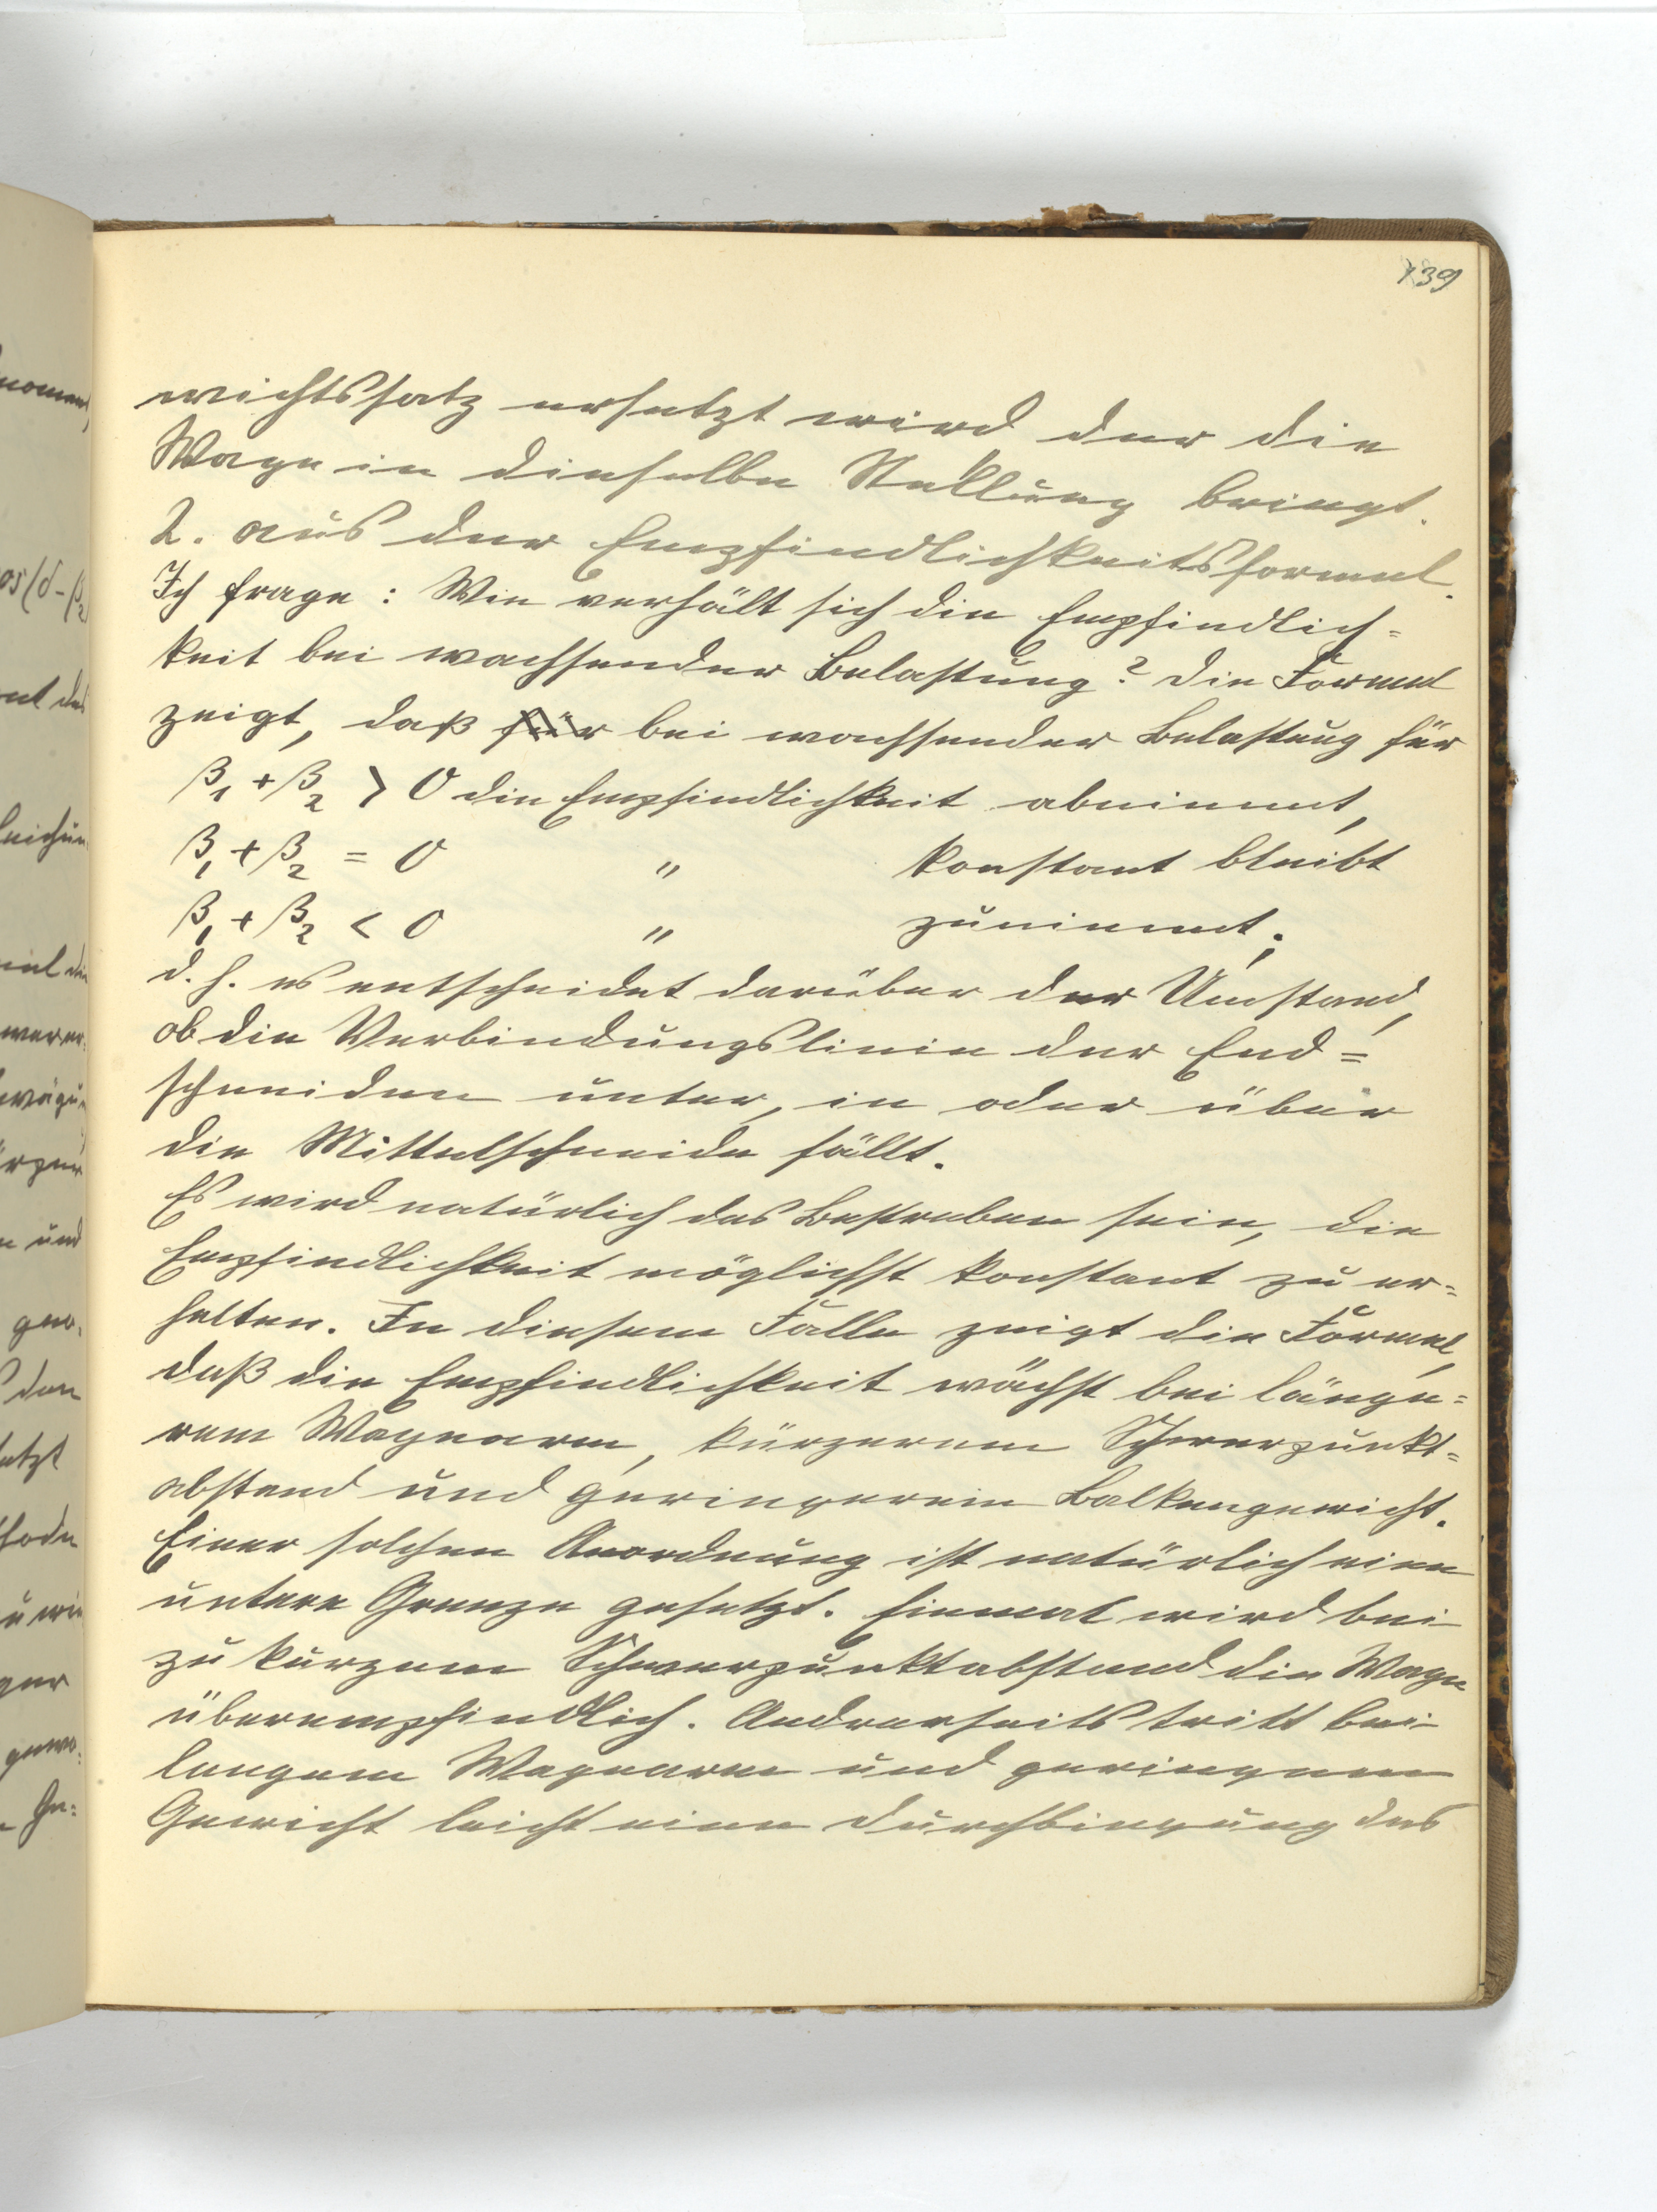 139
wichtssatz ersetzt wird der die
Wage in dieselbe Stellung bringt.
2. aus der Empfindlichkeitsformel.
Ich frage: Wie verhält sich die Empfindlich=
keit bei wachsender Belastung? Die Formel
zeigt, daß für bei wachsender Belastung für
β₁ + β₂ > 0 die Empfindlichkeit abnimmt,
β₁ + β₂ = 0 " konstant bleibt
β₁ + β₂ < 0 " zunimmt;
d. h. es entscheidet darüber der Umstand,
ob die Verbindungslinie der End=
schneiden unter, in oder über
die Mittelschneide fällt.
Es wird natürlich das Bestreben sein, die
Empfindlichkeit möglichst konstant zu er=
halten. In diesem Falle zeigt die Formel,
daß die Empfindlichkeit wächst bei länge=
rem Wagearm, kürzerem Schwerpunkt=
abstand und geringerem Balkengewicht.
Einer solchen Anordnung ist natürlich eine
untere Grenze gesetzt. Einmal wird bei
zu kurzem Schwerpunktabstand die Wage
überempfindlich. Andrerseits tritt bei
langem Wagearm und geringem
Gewicht leicht eine Durchbiegung des